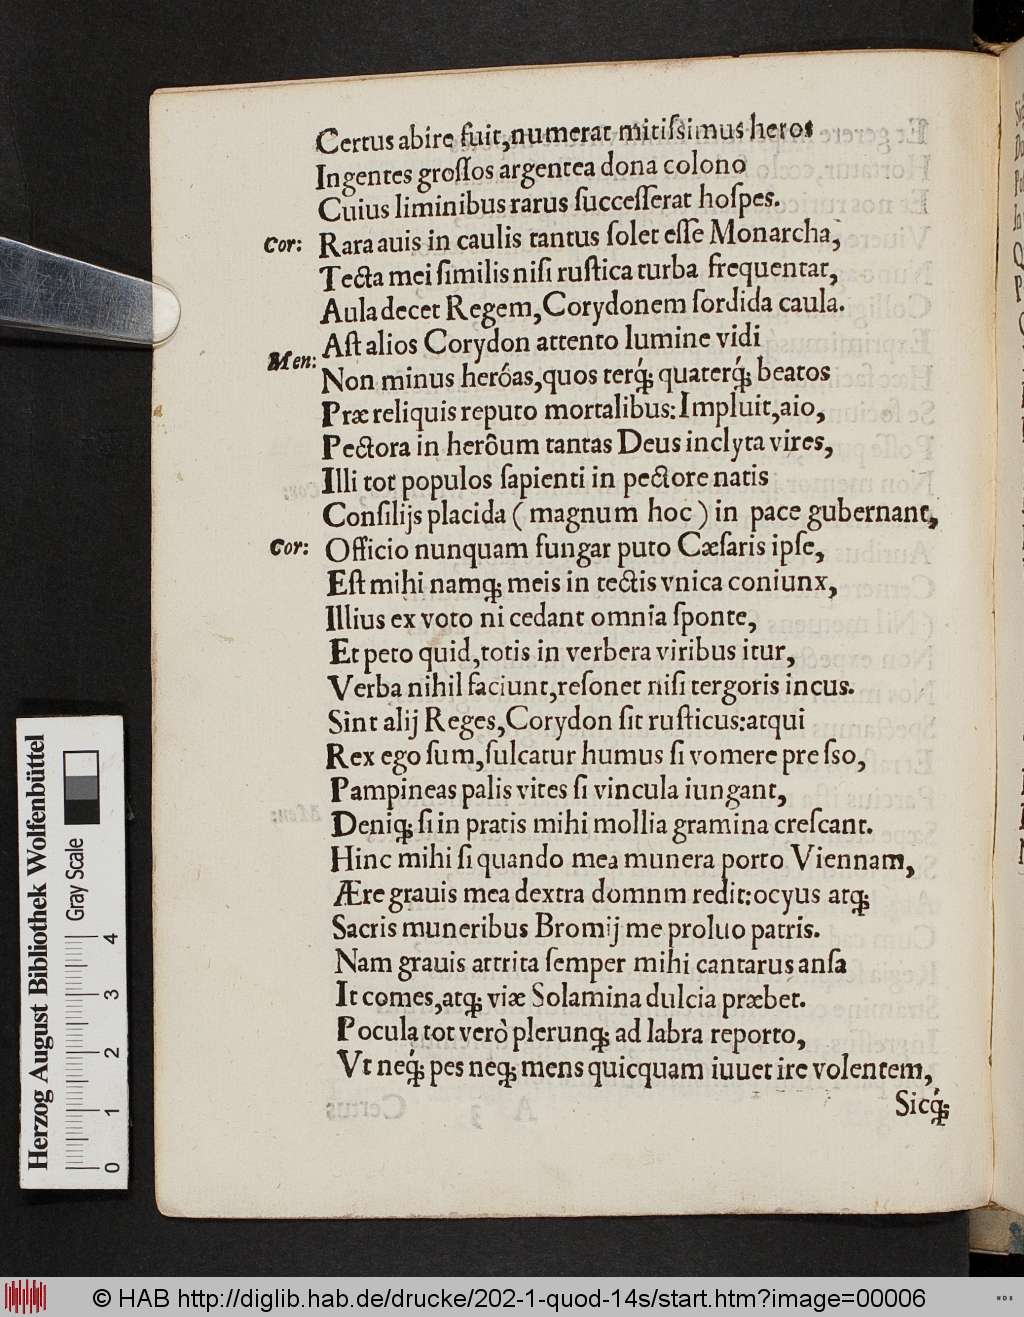 Certus abire fuit,numerat mitiſsimus heros
Ingentes groſſos argentea dona colono
Cuius liminibus rarus ſucceſſerat hoſpes.
Cor: Rara auis in caulis tantus ſolet eſſe Monarcha,
Tecta mei ſimilis niſi ruſtica turba frequentat,
Aula decet Regem,Corydonem ſordida caula.
Men: Aſt alios Corydon attento lumine vidi
Non minus heróas,quos terq́; quaterq́; beatos
Præ reliquis reputo mortalibus:Impluit,aio,
Pectora in herôum tantas Deus inclyta vires,
Illi tot populos ſapienti in pectore natis
Conſilijs placida ( magnum hoc ) in pace gubernant,
Cor: Officio nunquam fungar puto Cæſaris ipſe,
Eſt mihi namq; meis in tectis vnica coniunx,
Illius ex voto ni cedant omnia ſponte,
Et peto quid,totis in verbera viribus itur,
Verba nihil faciunt,reſonet niſi tergoris incus.
Sint alij Reges,Corydon ſit ruſticus:atqui
Rex ego ſum,ſulcatur humus ſi vomere preſſo,
Pampineas palis vites ſi vincula iungant,
Deniq; ſi in pratis mihi mollia gramina creſcant.
Hinc mihi ſi quando mea munera porto Viennam,
Ære grauis mea dextra domnm redit:ocyus atq;
Sacris muneribus Bromij me proluo patris.
Nam grauis attrita ſemper mihi cantarus anſa
It comes,atq; viæ Solamina dulcia præbet.
Pocula tot verò plerunq; ad labra reporto,
Vt neq́; pes neq; mens quicquam iuuet ire volentem,
Sicq́;
Herzog August Bibliothek Wolfenbüttel
Gray Scale
0 1 2 3 4
© HAB http://diglib.hab.de/drucke/202-1-quod-14s/start.htm?image=00006